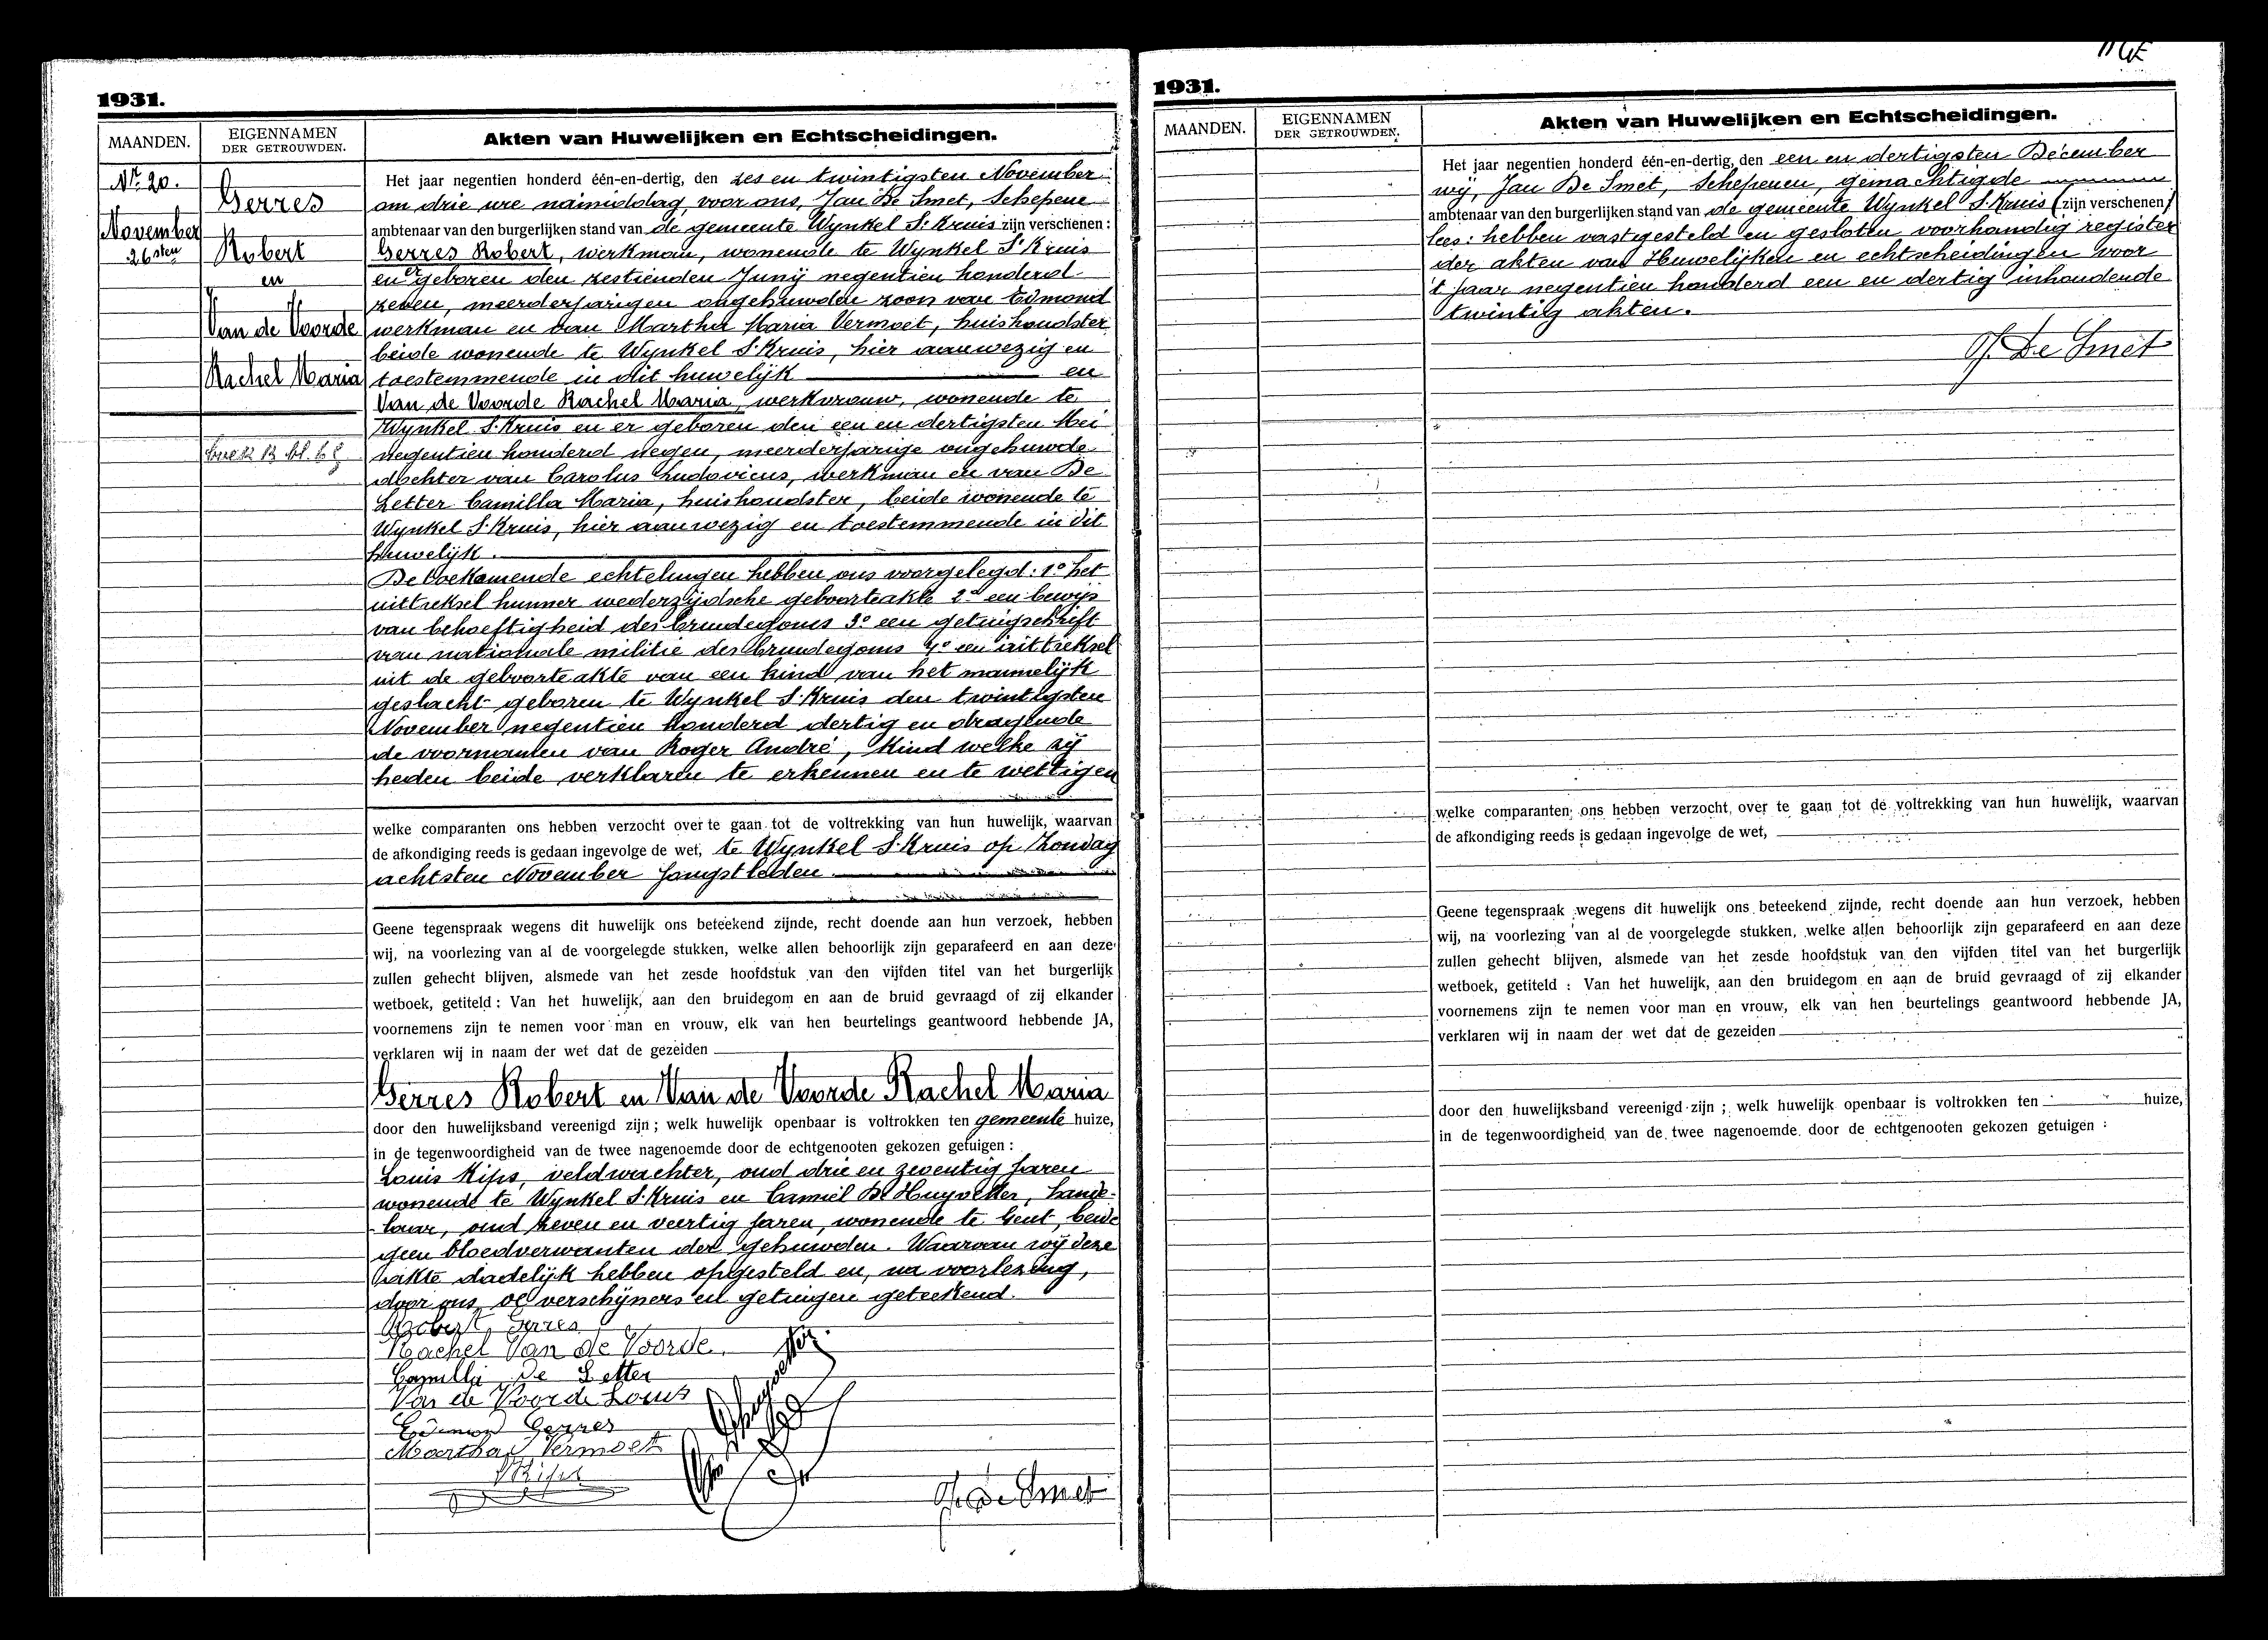 1931.
MAANDEN.
EIGENNAMEN
DER GETROUWDEN.
Akten van Huwelijken en Echtscheidingen.
Nr. 20.
November
26sten
Gerres
Robert
en
Van de Voorde
Rachel Maria
Het jaar negentien honderd één-en-dertig, den zes en twintigsten November
om drie ure namiddag, voor ons, Jan De Smet, Schepene
ambtenaar van den burgerlijken stand van de gemeente Wynkel St Kruis zijn verschenen:
Gerres Robert, werkman, wonende te Wynkel St Kruis
en er geboren den zestienden Junij negentien honderd
zeven, meerderjarigen ongehuwden zoon van Edmond
werkman en van Martha Maria Vermoet, huishoudster
beide wonende te Wynkel St Kruis, hier aanwezig en
toestemmende in dit huwelijk en
Van de Voorde Rachel Maria, werkvrouw, wonende te
Wynkel St Kruis en er geboren den een en dertigsten Mei
negentien honderd negen, meerderjarige ongehuwde
dochter van Carolus Ludovicus, werkman en van De
Letter Camilla Maria, huishoudster, beide wonende te
Wynkel St Kruis, hier aanwezig en toestemmende in dit
huwelijk.
De toekomende echtelingen hebben ons voorgelegd: 1° het
uittreksel hunner wederzijdsche geboorteakte 2° een bewijs
van behoeftigheid des bruidegoms 3° een getuigschrift
van nationale militie des bruidegoms 4° een uittreksel
uit de geboorteakte van een kind van het mannelijk
geslacht geboren te Wynkel St Kruis den twintigsten
November negentien honderd dertig en dragende
de voornamen van Roger André, kind welke zij
heden beide verklaren te erkennen en te wettigen
welke comparanten ons hebben verzocht over te gaan tot de voltrekking van hun huwelijk, waarvan
de afkondiging reeds is gedaan ingevolge de wet, te Wynkel St Kruis op Zondag
achtsten November jongstleden.
Geene tegenspraak wegens dit huwelijk ons beteekend zijnde, recht doende aan hun verzoek, hebben
wij, na voorlezing van al de voorgelegde stukken, welke allen behoorlijk zijn geparafeerd en aan deze
zullen gehecht blijven, alsmede van het zesde hoofdstuk van den vijfden titel van het burgerlijk
wetboek, getiteld : Van het huwelijk, aan den bruidegom en aan de bruid gevraagd of zij elkander
voornemens zijn te nemen voor man en vrouw, elk van hen beurtelings geantwoord hebbende JA,
verklaren wij in naam der wet dat de gezeiden
Gerres Robert en Van de Voorde Rachel Maria
door den huwelijksband vereenigd zijn ; welk huwelijk openbaar is voltrokken ten gemeente huize,
in de tegenwoordigheid van de twee nagenoemde door de echtgenooten gekozen getuigen :
Louis Kips, veldwachter, oud drie en zeventig jaren
wonende te Wynkel St Kruis en Camiel D'Huyvetter, hande-
laar, oud zeven en veertig jaren, wonende te Gent, beide
geen bloedverwanten der gehuwden. Waarvan wij deze
akte dadelijk hebben opgesteld en, na voorlezing,
door ons, de verschijners en getuigen geteekend.
Robert Gerres
Rachel Van de Voorde
Camilla De Letter
Van de Voorde Louis
Edmond Gerres
Martha Vermoet
Kips
J. De Smet
1931.
MAANDEN.
EIGENNAMEN
DER GETROUWDEN.
Akten van Huwelijken en Echtscheidingen.
Het jaar negentien honderd één-en-dertig, den een en dertigsten December
wij, Jan De Smet, Schepenen, gemachtigde
ambtenaar van den burgerlijken stand van de gemeente Wynkel St Kruis (zijn verschenen)
lees: hebben vastgesteld en gesloten voorhandig register
der akten van Huwelijken en echtscheidingen voor
't jaar negentien honderd een en dertig inhoudende
twintig akten.
J. De Smet
welke comparanten ons hebben verzocht over te gaan tot de voltrekking van hun huwelijk, waarvan
de afkondiging reeds is gedaan ingevolge de wet,
Geene tegenspraak wegens dit huwelijk ons beteekend zijnde, recht doende aan hun verzoek, hebben
wij, na voorlezing van al de voorgelegde stukken, welke allen behoorlijk zijn geparafeerd en aan deze
zullen gehecht blijven, alsmede van het zesde hoofdstuk van den vijfden titel van het burgerlijk
wetboek, getiteld : Van het huwelijk, aan den bruidegom en aan de bruid gevraagd of zij elkander
voornemens zijn te nemen voor man en vrouw, elk van hen beurtelings geantwoord hebbende JA,
verklaren wij in naam der wet dat de gezeiden
door den huwelijksband vereenigd zijn ; welk huwelijk openbaar is voltrokken ten huize,
in de tegenwoordigheid van de twee nagenoemde door de echtgenooten gekozen getuigen :